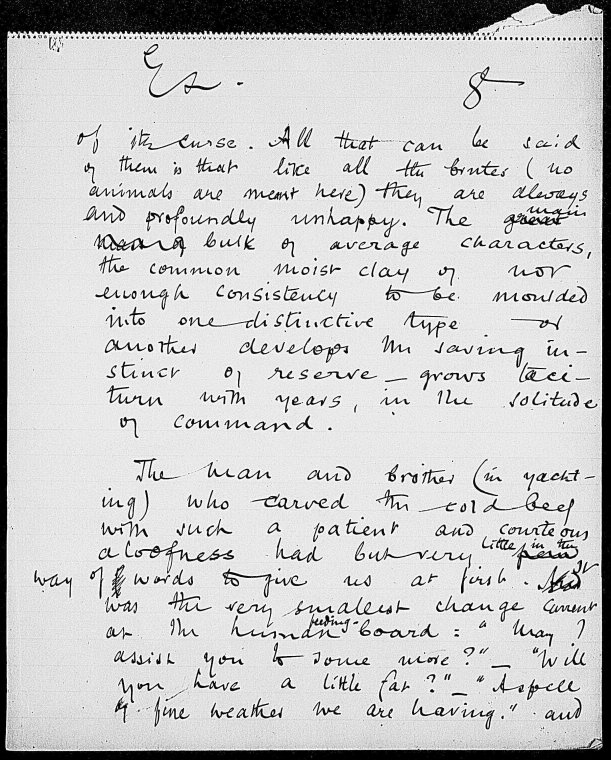 Es. 8
of its curse. All that can be said
of them is that like all the brutes (no
animals are meant here) they are always
and profoundly unhappy. The great main
bulk of average characters,
the common moist clay of not
enough consistency to be moulded
into one distinctive type or
another develops the saving in-
stinct of reserve — grows taci-
turn with years, in the solitude
of command.
The man and brother (in yacht-
ing) who carved the cold beef
with such a patient and courteous
aloofness had but very little in the
way of words to give us at first. It
was the very smallest change current
at the human feeding-board: "May I
assist you to some more?" — "Will
you have a little fat?" — "A spell
of fine weather we are having." and